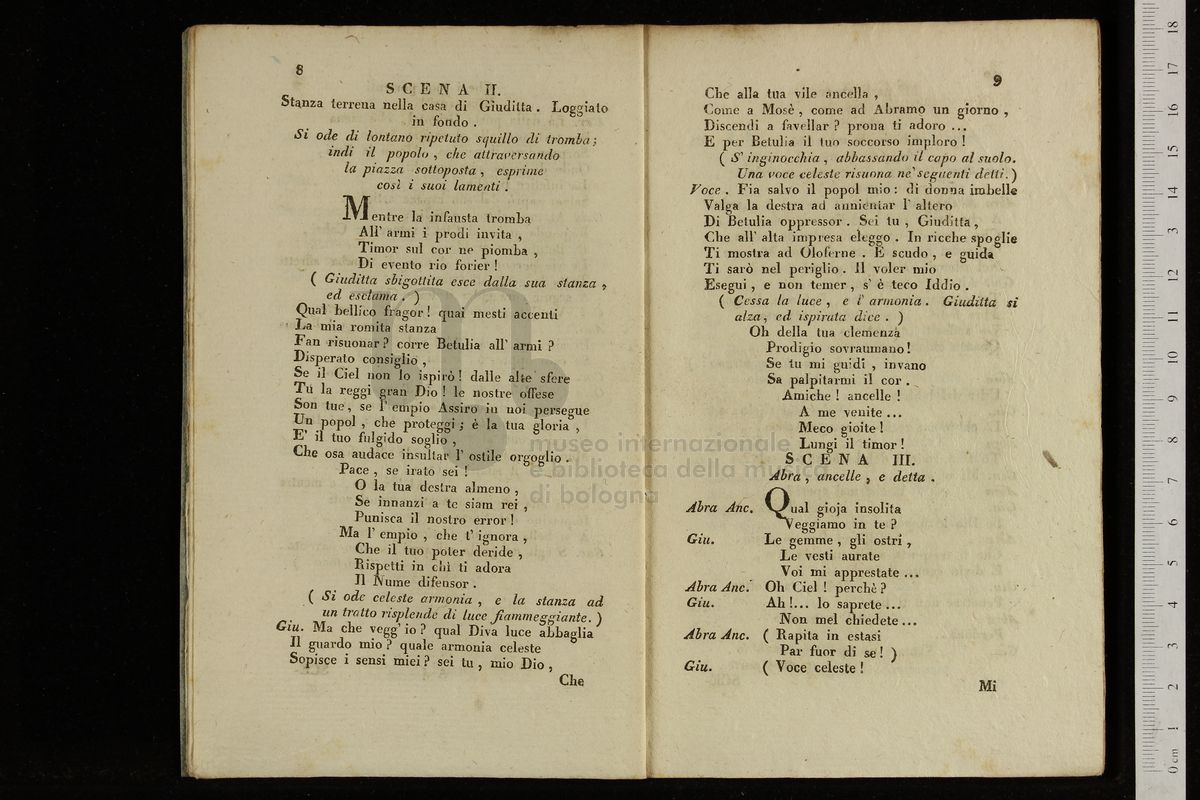 8
SCENA II.
Stanza terrena nella casa di Giuditta. Loggiato
in fondo.
Si ode di lontano ripetuto squillo di tromba;
indi il popolo, che attraversando
la piazza sottoposta, esprime
così i suoi lamenti.
Mentre la infausta tromba
All' armi i prodi invita,
Timor sul cor ne piomba,
Di evento rio forier!
( Giuditta sbigottita esce dalla sua stanza,
ed esclama. )
Qual bellico fragor! quai mesti accenti
La mia romita stanza
Fan risuonar? corre Betulia all' armi?
Disperato consiglio,
Se il Ciel non lo ispirò! dalle alte sfere
Tu la reggi gran Dio! le nostre offese
Son tue, se l' empio Assiro in noi persegue
Un popol, che proteggi; è la tua gloria,
E' il tuo fulgido soglio,
Che osa audace insultar l' ostile orgoglio.
Pace, se irato sei!
O la tua destra almeno,
Se innanzi a te siam rei,
Punisca il nostro error!
Ma l' empio, che t' ignora,
Che il tuo poter deride,
Rispetti in chi ti adora
Il Nume difensor.
( Si ode celeste armonia, e la stanza ad
un tratto risplende di luce fiammeggiante. )
Giu. Ma che vegg' io? qual Diva luce abbaglia
Il guardo mio? quale armonia celeste
Sopisce i sensi miei? sei tu, mio Dio,
Che
9
Che alla tua vile ancella,
Come a Mosè, come ad Abramo un giorno,
Discendi a favellar? prona ti adoro ...
E per Betulia il tuo soccorso imploro!
( S' inginocchia, abbassando il capo al suolo.
Una voce celeste risuona ne' seguenti detti. )
Voce. Fia salvo il popol mio: di donna imbelle
Valga la destra ad annientar l' altero
Di Betulia oppressor. Sei tu, Giuditta,
Che all' alta impresa eleggo. In ricche spoglie
Ti mostra ad Oloferne. E scudo, e guida
Ti sarò nel periglio. Il voler mio
Esegui, e non temer, s' è teco Iddio.
( Cessa la luce, e l' armonia. Giuditta si
alza, ed ispirata dice. )
Oh della tua clemenza
Prodigio sovraumano!
Se tu mi guidi, invano
Sa palpitarmi il cor.
Amiche! ancelle!
A me venite ...
Meco gioite!
Lungi il timor!
SCENA III.
Abra, ancelle, e detta.
Abra Anc. Qual gioja insolita
Veggiamo in te?
Giu. Le gemme, gli ostri,
Le vesti aurate
Voi mi apprestate ...
Abra Anc. Oh Ciel! perchè?
Giu. Ah!... lo saprete ...
Non mel chiedete ...
Abra Anc. ( Rapita in estasi
Par fuor di se! )
Giu. ( Voce celeste!
Mi
museo internazionale
e biblioteca della musica
di bologna
0 cm 1 2 3 4 5 6 7 8 9 10 11 12 13 14 15 16 17 18